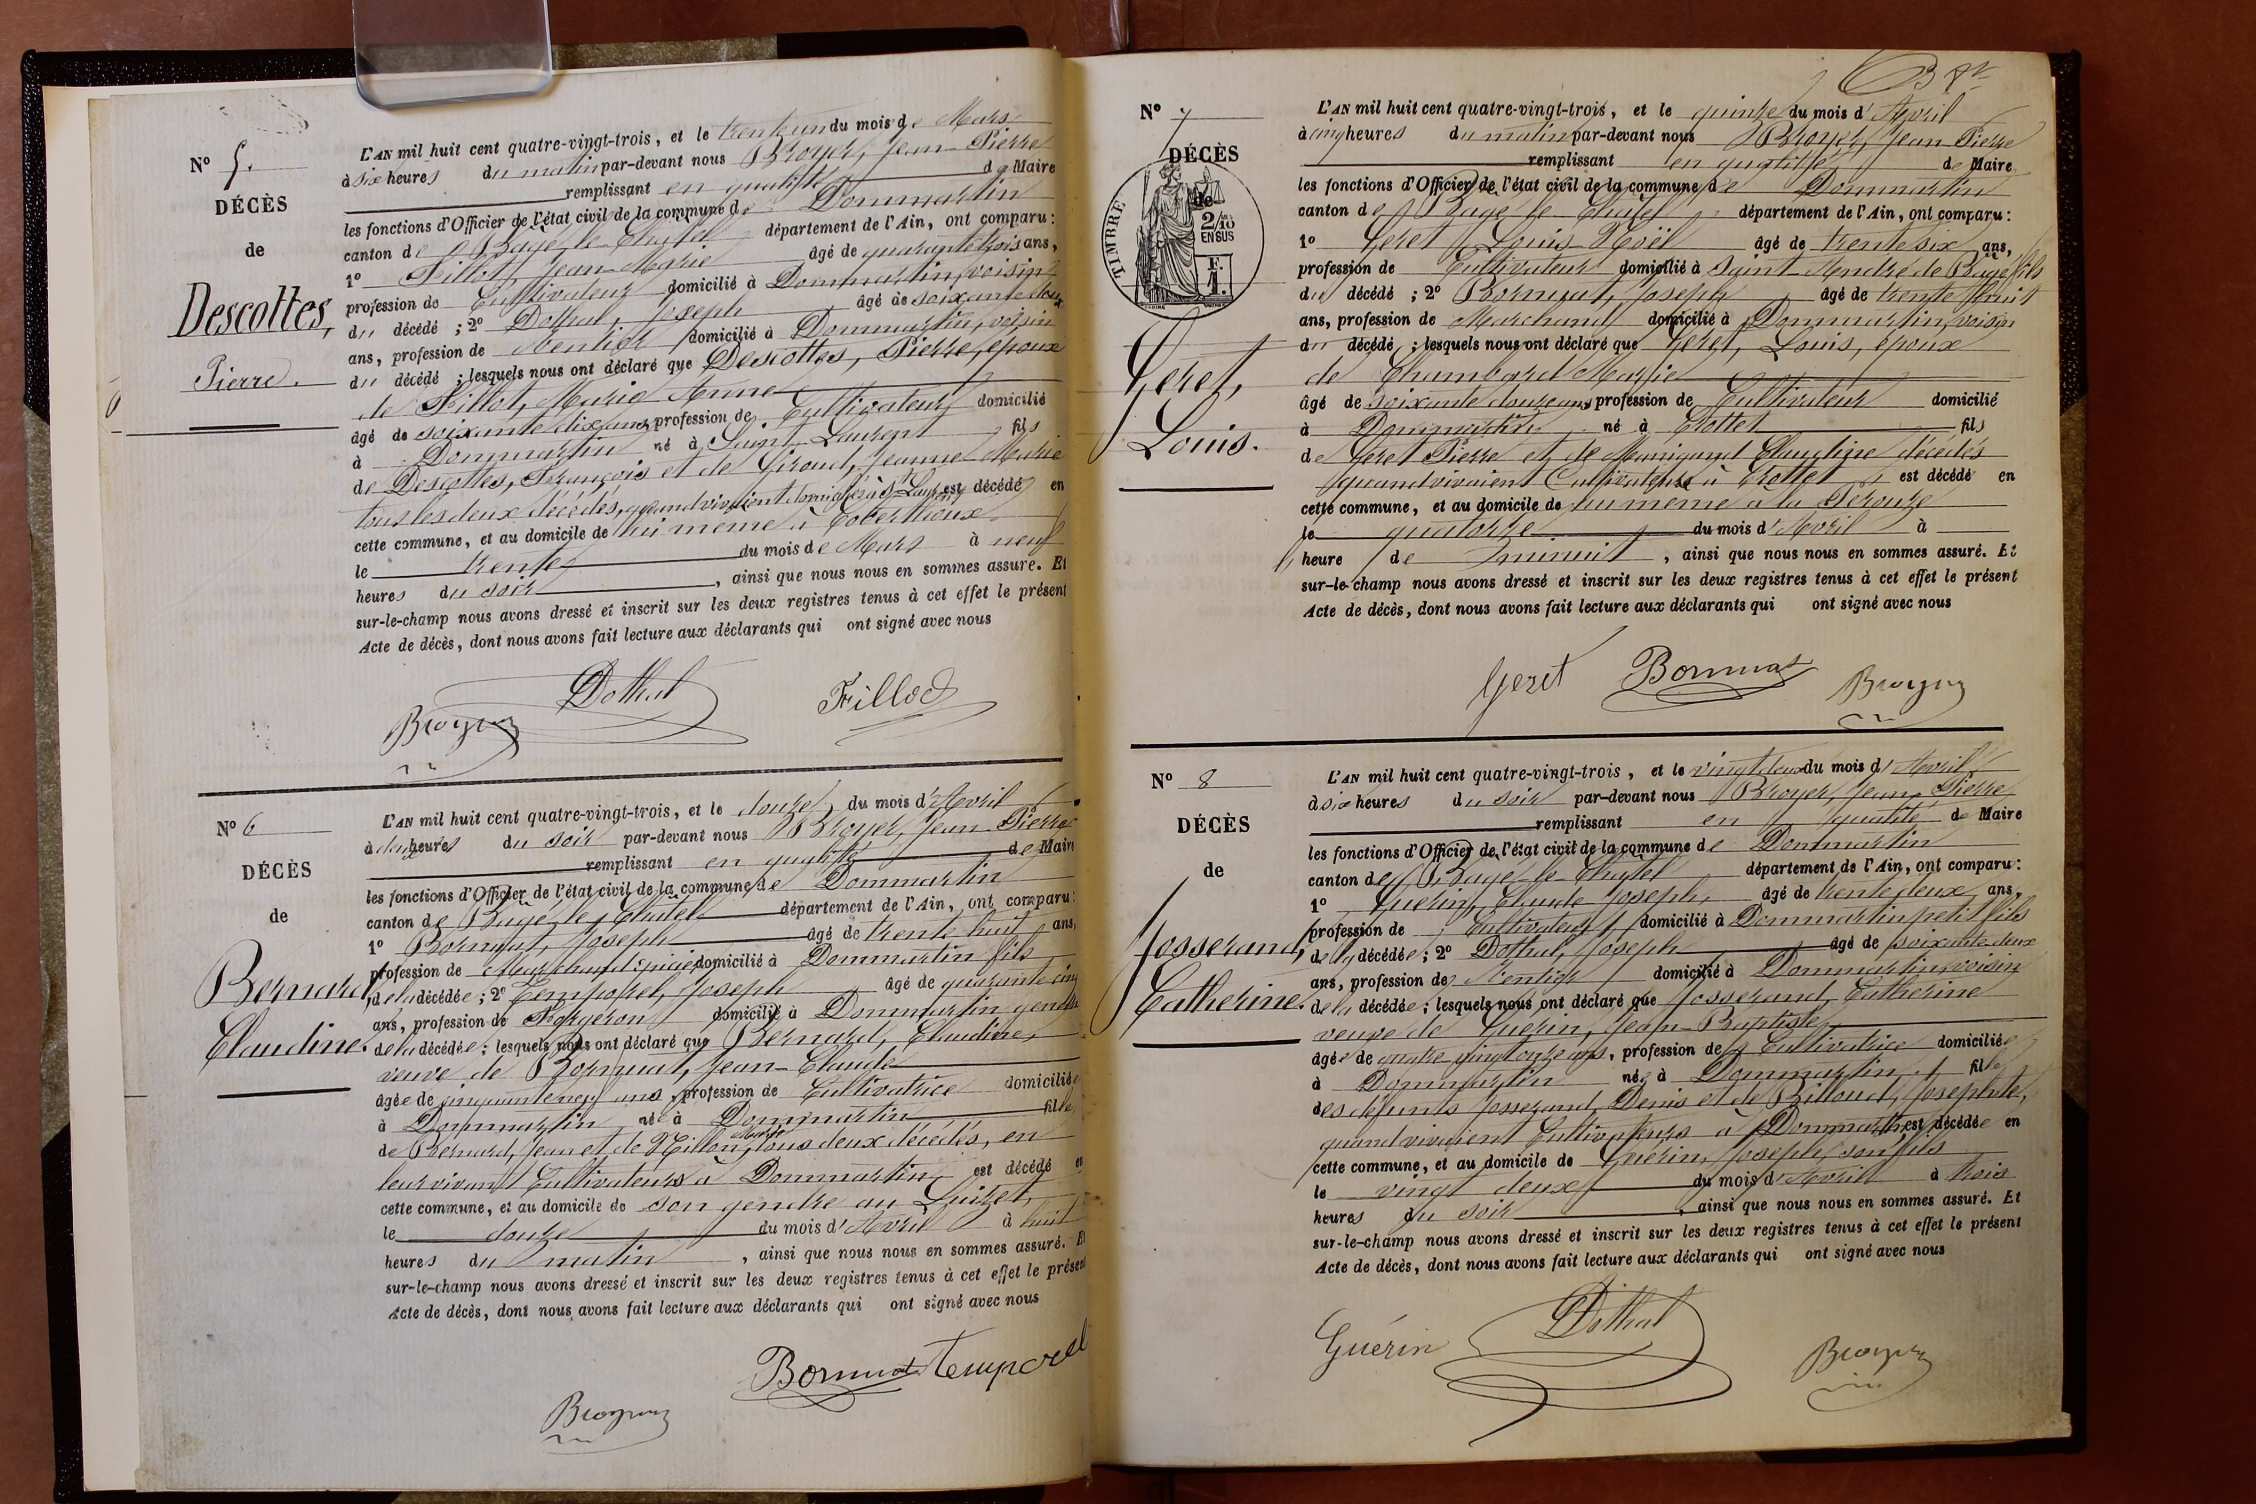 N° 5.
DÉCÈS
de
Descottes,
Pierre.
L'AN mil huit cent quatre-vingt-trois, et le trente un du mois de Mars
à six heures du matin par-devant nous Broyer, Jean-Pierre
remplissant en qualité de Maire
les fonctions d'Officier de l'état civil de la commune de Dommartin
canton de Bagé-le-Châtel département de l'Ain, ont comparu:
1° Fillot, Jean-Marie âgé de quarante trois ans,
profession de Cultivateur domicilié à Dommartin, voisin
du décédé; 2° Dothal, Joseph âgé de soixante deux
ans, profession de Rentier domicilié à Dommartin, voisin
du décédé; lesquels nous ont déclaré que Descottes, Pierre, époux
de Fillot, Marie Anne
âgé de soixante dix ans, profession de Cultivateur domicilié
à Dommartin né à Saint-Laurent fils
de Descottes, François et de Giroud, Jeanne-Marie
tous les deux décédés, quand vivaient domiciliés à St Laurent est décédé en
cette commune, et au domicile de lui même à
le trente du mois de Mars à neuf
heures du soir, ainsi que nous nous en sommes assuré. Et
sur-le-champ nous avons dressé et inscrit sur les deux registres tenus à cet effet le présent
Acte de décès, dont nous avons fait lecture aux déclarants qui ont signé avec nous
Dothal Fillod
Broyer
N° 6
DÉCÈS
de
Bernard,
Claudine.
L'AN mil huit cent quatre-vingt-trois, et le douze du mois d'Avril
à deux heures du soir par-devant nous Broyer, Jean-Pierre
remplissant en qualité de Maire
les fonctions d'Officier de l'état civil de la commune de Dommartin
canton de Bagé-le-Châtel département de l'Ain, ont comparu:
1° Bornuat, Joseph âgé de trente huit ans,
profession de Marchand épicier domicilié à Dommartin fils
de la décédée; 2° Temporel, Joseph âgé de quarante cinq
ans, profession de Forgeron domicilié à Dommartin gendre
de la décédée; lesquels nous ont déclaré que Bernard, Claudine,
veuve de Bornuat, Jean-Claude
âgée de cinquante neuf ans, profession de Cultivatrice domiciliée
à Dommartin née à Dommartin fille
de Bernard, Jean et de Fillon, Marie tous deux décédés, en
leur vivant Cultivateurs à Dommartin est décédé en
cette commune, et au domicile de son gendre au Luizet,
le douze du mois d'Avril à huit
heures du matin, ainsi que nous nous en sommes assuré. Et
sur-le-champ nous avons dressé et inscrit sur les deux registres tenus à cet effet le présent
Acte de décès, dont nous avons fait lecture aux déclarants qui ont signé avec nous
Bornuat Temporel
Broyer
N° 7
DÉCÈS
de
TIMBRE
2/10
EN SUS
Geret,
Louis.
L'AN mil huit cent quatre-vingt-trois, et le quinze du mois d'Avril
à cinq heures du matin par-devant nous Broyer, Jean Pierre
remplissant en qualité de Maire
les fonctions d'Officier de l'état civil de la commune de Dommartin
canton de Bagé-le-Châtel département de l'Ain, ont comparu:
1° Geret Louis-Noël âgé de trente six ans,
profession de Cultivateur domicilié à Saint-André de Bagé fils
du décédé; 2° Bornuat, Joseph âgé de trente huit
ans, profession de Marchand domicilié à Dommartin, voisin
du décédé; lesquels nous ont déclaré que Geret, Louis, époux
de Chambard Marie
âgé de soixante douze ans profession de Cultivateur domicilié
à Dommartin né à Crottet fils
de Geret Pierre et de Maingand Claudine décédés
quand vivaient Cultivateurs à Crottet est décédé en
cette commune, et au domicile de lui même à la Pérouze
le quatorze du mois d'Avril à
heure de minuit, ainsi que nous nous en sommes assuré. Et
sur-le-champ nous avons dressé et inscrit sur les deux registres tenus à cet effet le présent
Acte de décès, dont nous avons fait lecture aux déclarants qui ont signé avec nous
Geret Bornuat Broyer
N° 8
DÉCÈS
de
Josserand,
Catherine.
L'AN mil huit cent quatre-vingt-trois, et le vingt deux du mois d'Avril
à six heures du soir par-devant nous Broyer, Jean-Pierre
remplissant en qualité de Maire
les fonctions d'Officier de l'état civil de la commune de Dommartin
canton de Bagé-le-Châtel département de l'Ain, ont comparu:
1° Guérin, Claude Joseph, âgé de trente deux ans,
profession de Cultivateur domicilié à Dommartin petit fils
de la décédée; 2° Dothal, Joseph âgé de soixante deux
ans, profession de Rentier domicilié à Dommartin, voisin
de la décédée; lesquels nous ont déclaré que Josserand, Catherine
veuve de Guérin, Jean-Baptiste
âgée de quatre vingt onze ans, profession de Cultivatrice domiciliée
à Dommartin née à Dommartin fille
des défunts Josserand, Denis et de Billoud, Josephte,
quand vivaient Cultivateurs à Dommartin est décédée en
cette commune, et au domicile de Guérin, Joseph, son fils
le vingt deux du mois d'Avril à trois
heures du soir, ainsi que nous nous en sommes assuré. Et
sur-le-champ nous avons dressé et inscrit sur les deux registres tenus à cet effet le présent
Acte de décès, dont nous avons fait lecture aux déclarants qui ont signé avec nous
Guérin Dothal Broyer